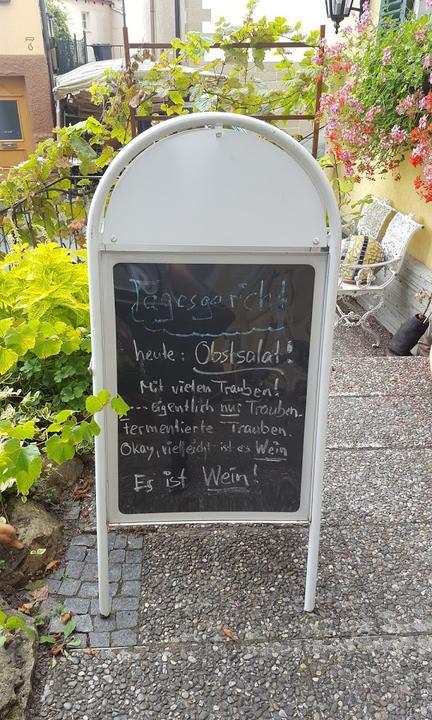 Tagesgericht
heute: Obstsalat!
Mit vielen Trauben!
.... eigentlich nur Trauben.
fermentierte Trauben.
Okay, vielleicht ist es Wein
Es ist Wein!